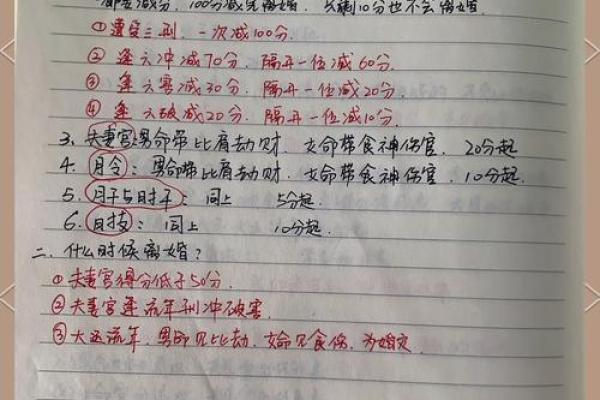 减分，100分减完离婚，只剩10分也不会离婚.
①遭受三刑，一次减100分.
②逢六冲减70分，隔开一位减60分.
③逢六害减30分，隔开一位减20分.
④逢六破减20分，隔开一位减10分.
3、夫妻宫:男命带比肩劫财、女命带食神伤官、20分起
4、月令：男命带比肩劫财、女命带食神伤官、10分起、
5、月干与时干：同上 5分起.
6、时技：同上 10分起.
二、什么时候离婚？
①夫妻宫得分低于50分.
②夫妻宫逢流年刑冲破害.
③大运流年，男命见比劫、女命见食伤，为婚灾.